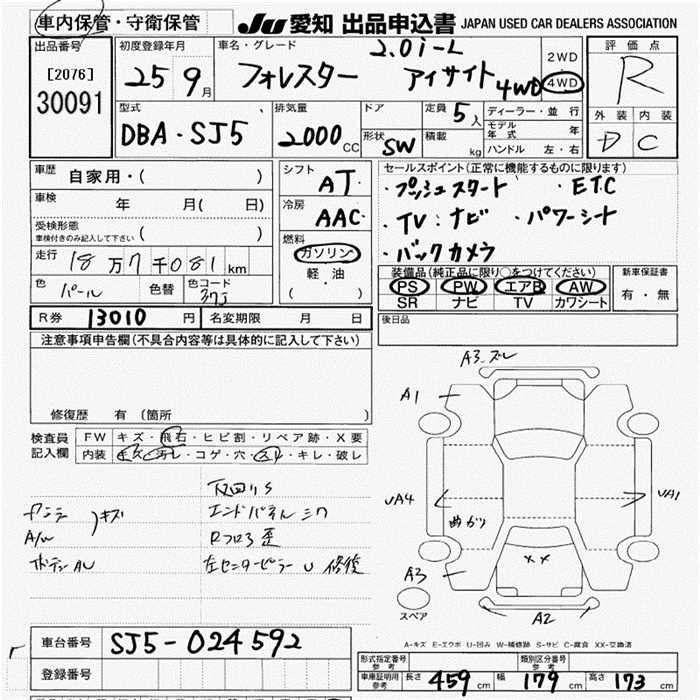 車内保管・守衛保管
JU 愛知 出品申込書 JAPAN USED CAR DEALERS ASSOCIATION
出品番号
[2076]
30091
初度登録年月
25 9月
車名・グレード
2.0i-L
フォレスター アイサイト 4WD
2WD
4WD
評価点
R
外装 内装
D C
型式
DBA・SJ5
排気量
2000 CC
ドア
形状 SW
定員 5 人
積載 kg
ディーラー・並行
モデル年式 年
ハンドル 左・右
車歴 自家用・( )
車検 年 月( 日)
受検形態
車検付きのみ記入して下さい ( )
走行 18万7千081km
色 パール 色替 色コード 37J
シフト AT
冷房 AAC
燃料
ガソリン
軽・油
( ・ )
セールスポイント(正常に機能するものに限ります)
・プッシュスタート ・ETC
・TV・ナビ ・パワーシート
・バックカメラ
装備品(純正品に限り○をつけてください)
PS PW エアB AW
SR ナビ TV カワシート
新車保証書
有・無
R券 13010円 名変期限 月 日
後日品
注意事項申告欄(不具合内容等は具体的に記入して下さい)
修復歴 有(箇所 )
検査員記入欄
FW キズ・飛石・ヒビ割・リペア跡・X要
内装 キズ・汚レ・コゲ・穴・スレ・キレ・破レ
キズ
A/W
エンドパネル
Rフロア歪
左センターピラー U 修復
A3.ズレ
A1
UA4
曲がり
UA1
A3
XX
A2
スペア
A-キズ E-エクボ U-凹み W-補修跡 S-サビ C-腐食 XX-交換済
車台番号 SJ5-024592
登録番号
形式指定番号 参考
類別区分番号 参考
車庫証明用 参考 長さ 459cm 幅 179cm 高さ 173cm